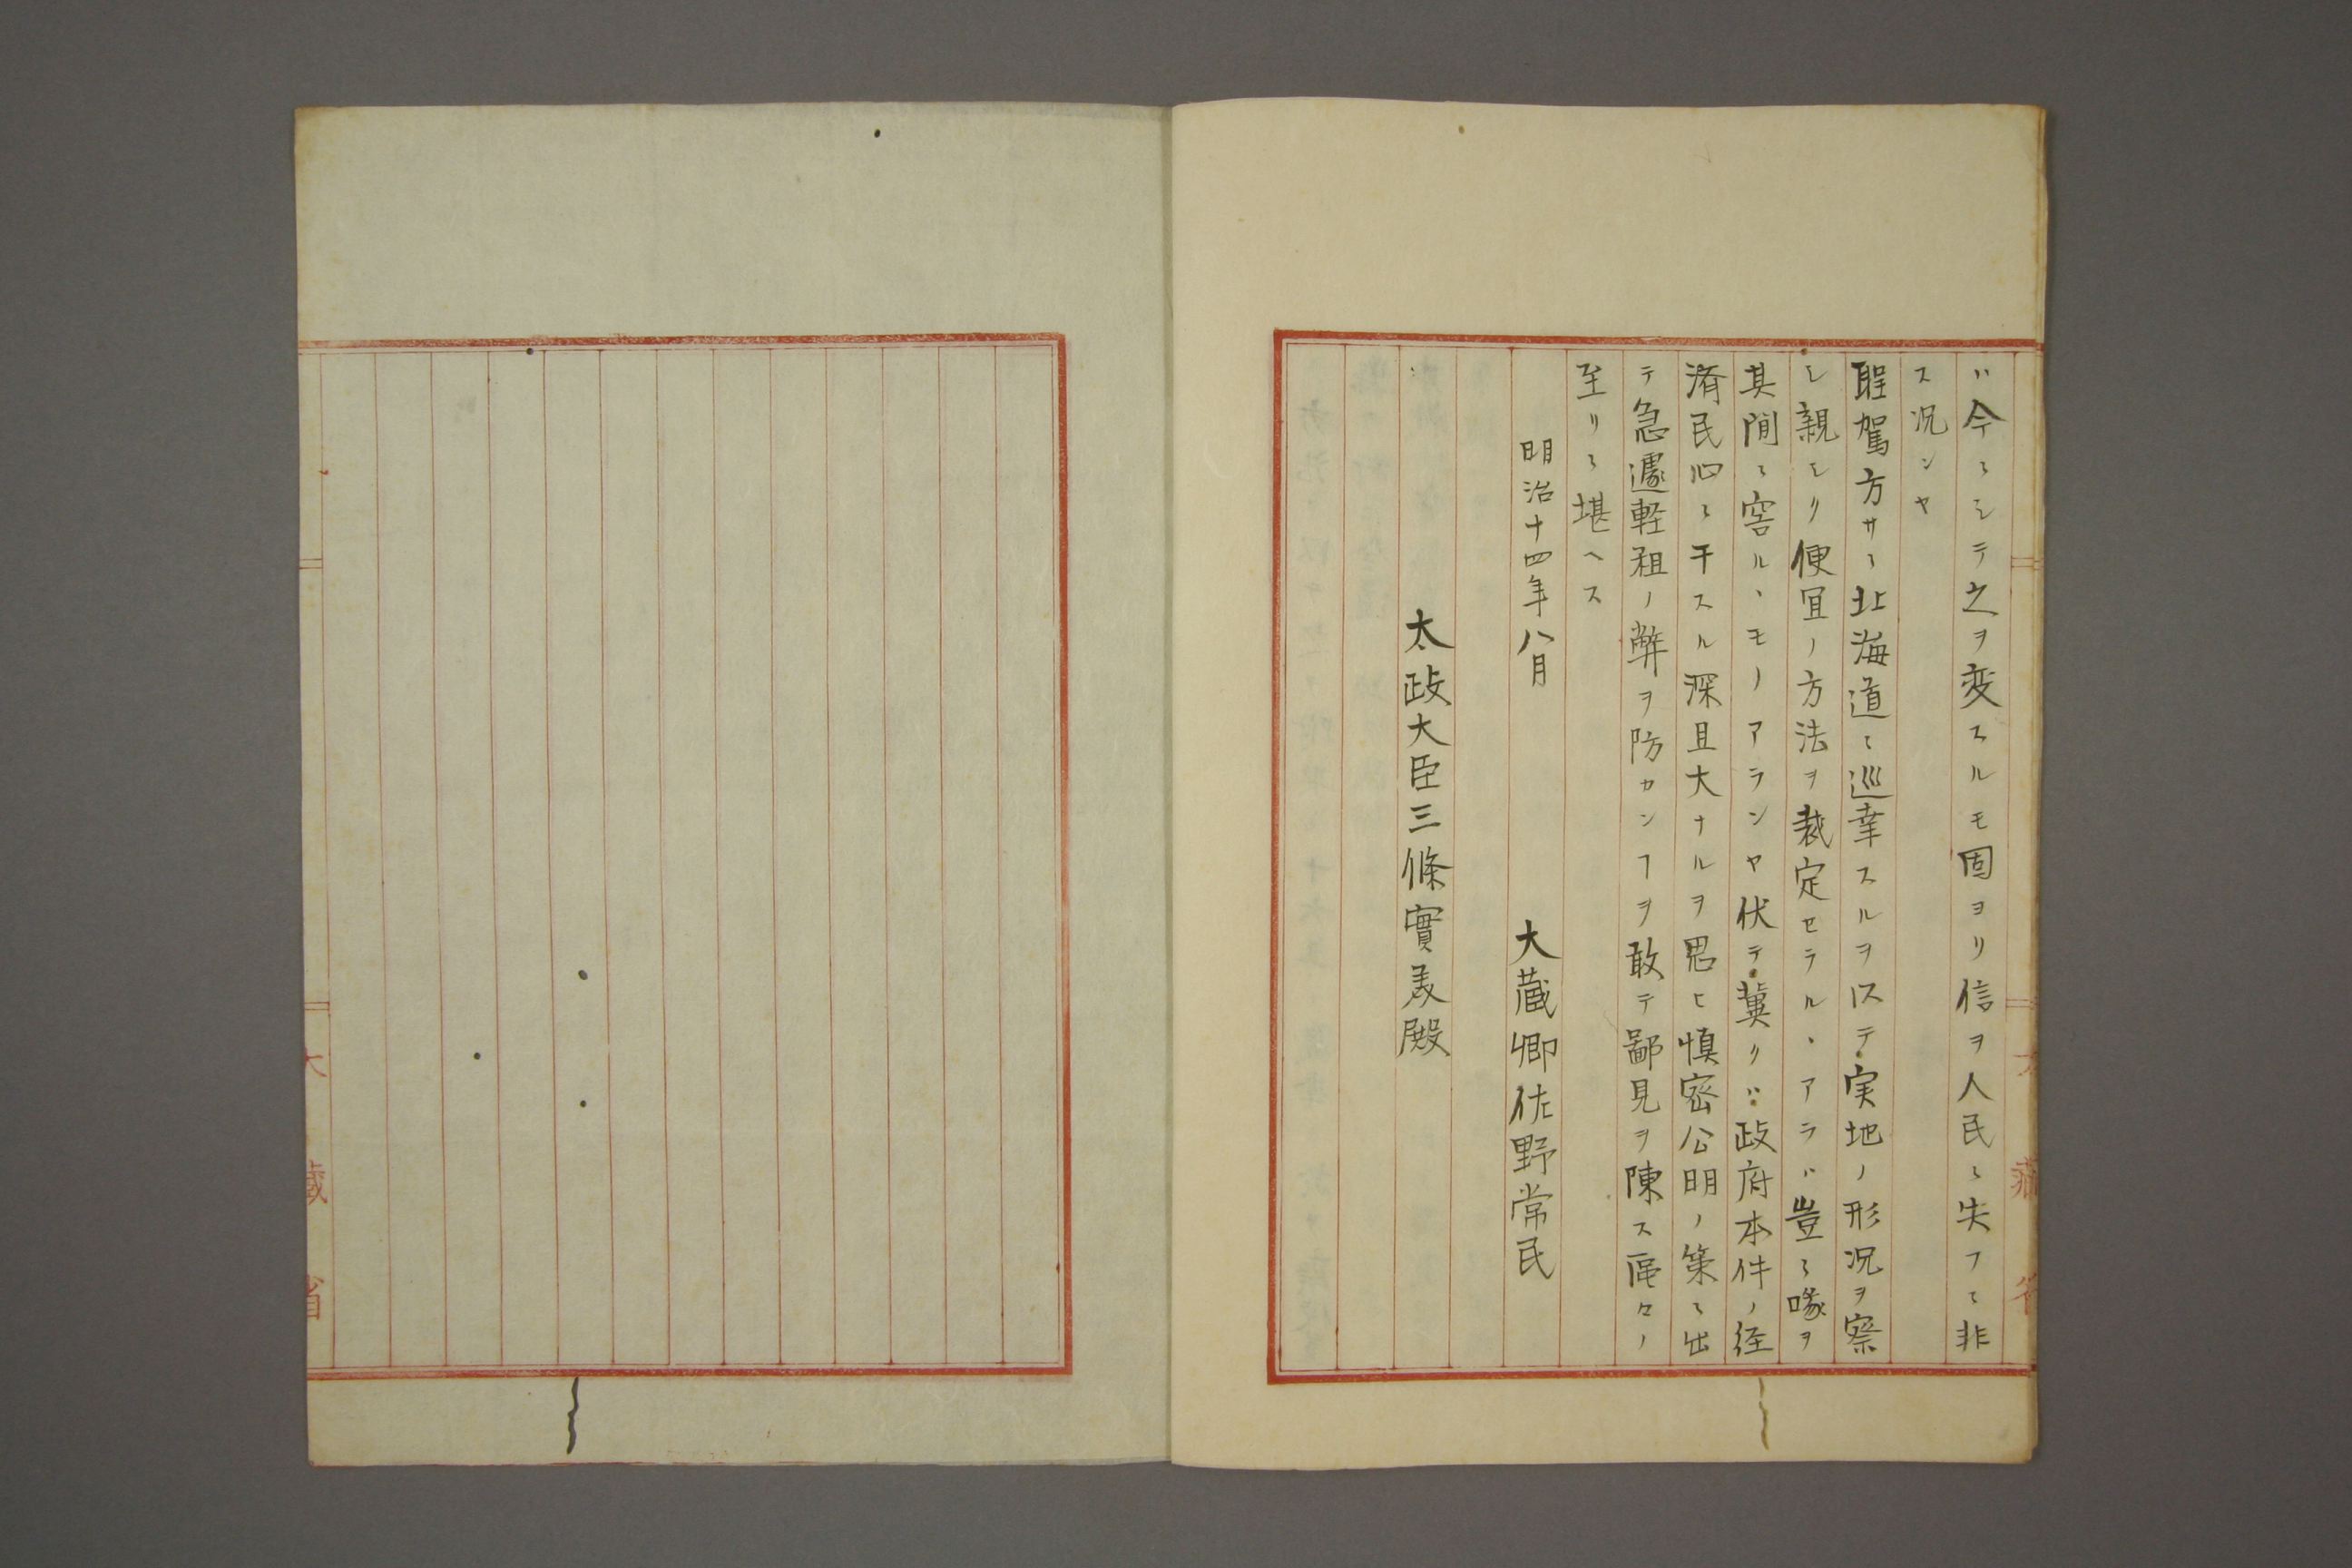 ハ今ニシテ之ヲ変スルモ固ヨリ信ヲ人民ニ失フニ非
ス况ンヤ
聖駕方サニ北海道ニ巡幸スルヲ以テ実地ノ形況ヲ察
シ親シク便宜ノ方法ヲ裁定セラルヽアラハ豈ニ喙ヲ
其間ニ容ルヽモノアランヤ伏テ冀クハ政府本件ノ経
済民心ニ干スル深且大ナルヲ思ヒ慎密公明ノ策ニ出
テ急遽軽粗ノ弊ヲ防カンヿヲ敢テ鄙見ヲ陳ス区々ノ
至リニ堪ヘス
明治十四年八月
大蔵卿佐野常民
太政大臣三條實美殿
大藏省